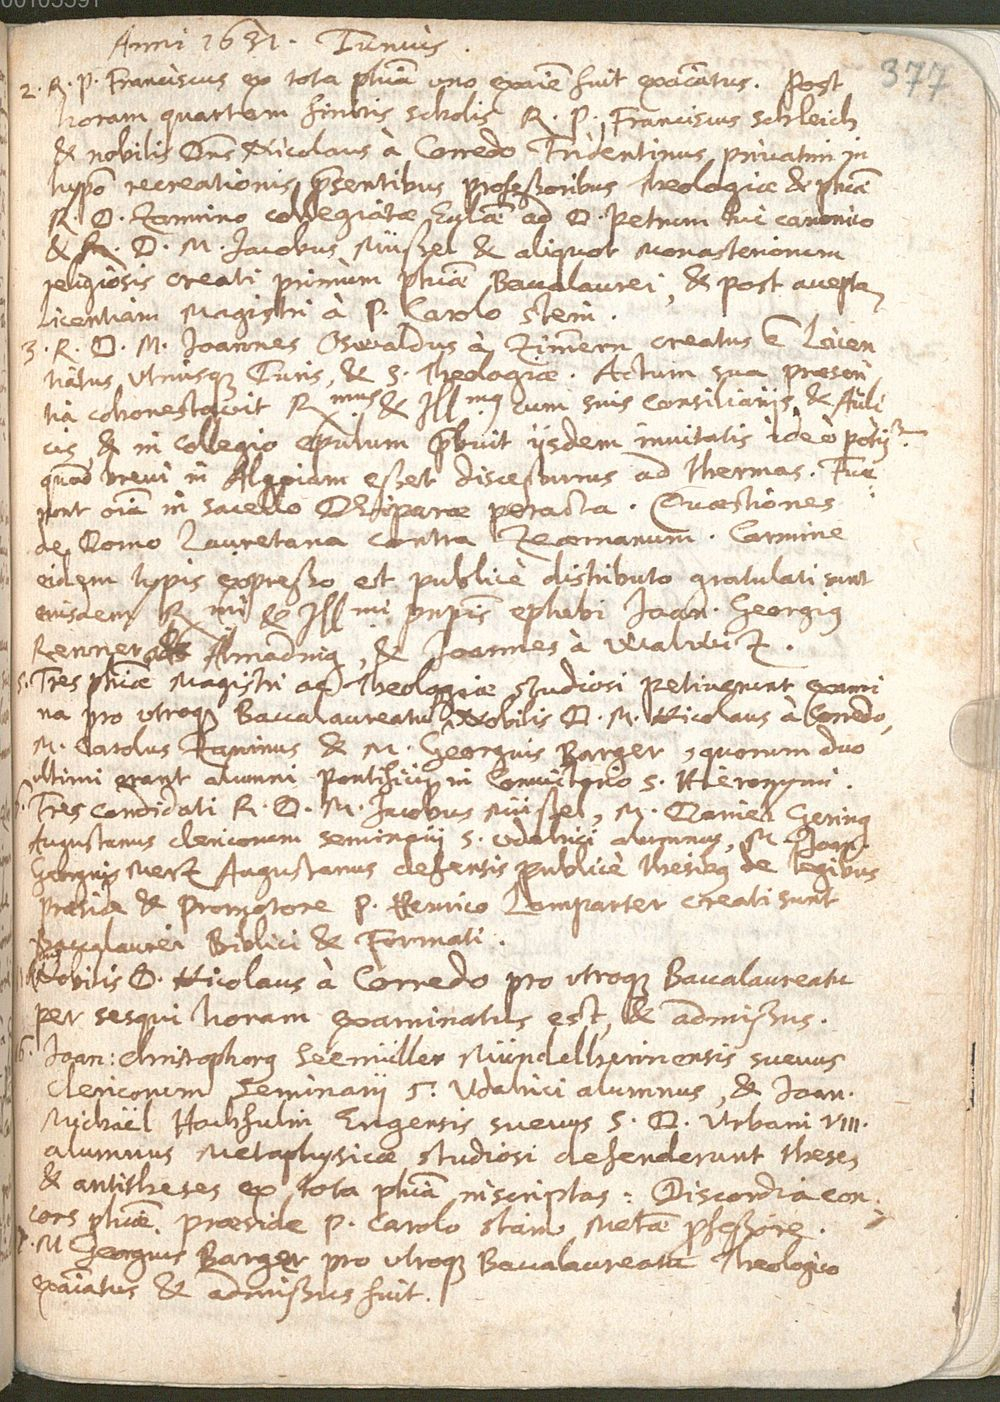 00103391
Anni 1631. Iunius.
377
2. R. P. Franciscus ex tota phiâ uno exaīe fuit exaīatus. Post
horam quartam finitis scholis R. P. Franciscus Schleich
& nobilis Dns Nicolaus à Corredo Tridentinus privatim in
hypo recreationis, p̄sentibus professoribus theologiae & phiae
R. D. collegiatae Ecclae ad D. Petrum hic canonico
& R. D. M. Jacobus Müssel & aliquot monasteriorum
religiosis creati primùm phiae Baccalaurei, & post accepta
Licentiam Magistri à P. Carolo Stem.
3. R. D. M. Joannes Oswaldus à Zimern creatus ē Licen
tiatus utriusq Iuris, & S. Theologiae. Actum sua praesen
tia cohonestavit Rmus & Illmq cum suis consiliarijs, & Auli
cis, & in collegio epulum p̄buit ijsdem invitatis ideò potiss.
quòd brevi in Algoiam esset discessurus ad thermas. Fue
runt oīa in sacello Deiparae peracta. Quaestiones
de Domo Lauretana contra . Carmine
eidem typis expresso et publicè distributo gratulati sunt
eiusdem Rmi & Illmi pnpis ephebi Joan. Georgiq
Renner , & Joannes à Walwitz.
5. Tres phiae Magistri ac Theologiae studiosi petiverunt exami
na pro utroq Baccalaureatu, Nobilis D. M. Nicolaus à Corredo,
M. Carolus Zaninus & M. Georgius Barger, quorum duo
ultimi erant alumni Pontificij in Convictorio S. Hieronymi.
Tres candidati R. D. M. Jacobus Müssel, M. Daniel Gering
Augustanus clericorum seminarij S. Udalrici alumnus, M. Joan.
Georgius Mertz Augustanus defensis publicè thesibq de legibus
praeside & Promotore P. Henrico Lamparter creati sunt
Baccalaurei Biblici & Formati.
Nobilis D. Nicolaus à Corredo pro utroq Baccalaureatu
per sesqui horam examinatus est, & admissus.
16. Joan: Christophorq Seemüller Mündelheimensis suevus
Clericorum Seminarij S. Udalrici alumnus, & Joan.
Michaël Engensis suevus S. D. Urbani VIII.
alumnus Metaphysicae studiosi defenderunt theses
& antitheses ex tota phiâ inscriptas: Discordia con-
cors phiae, praeside P. Carolo Stem Metae p̄fessore.
M Georgius Barger pro utroq Baccalaureatu Theologico
exaīatus & admissus fuit.